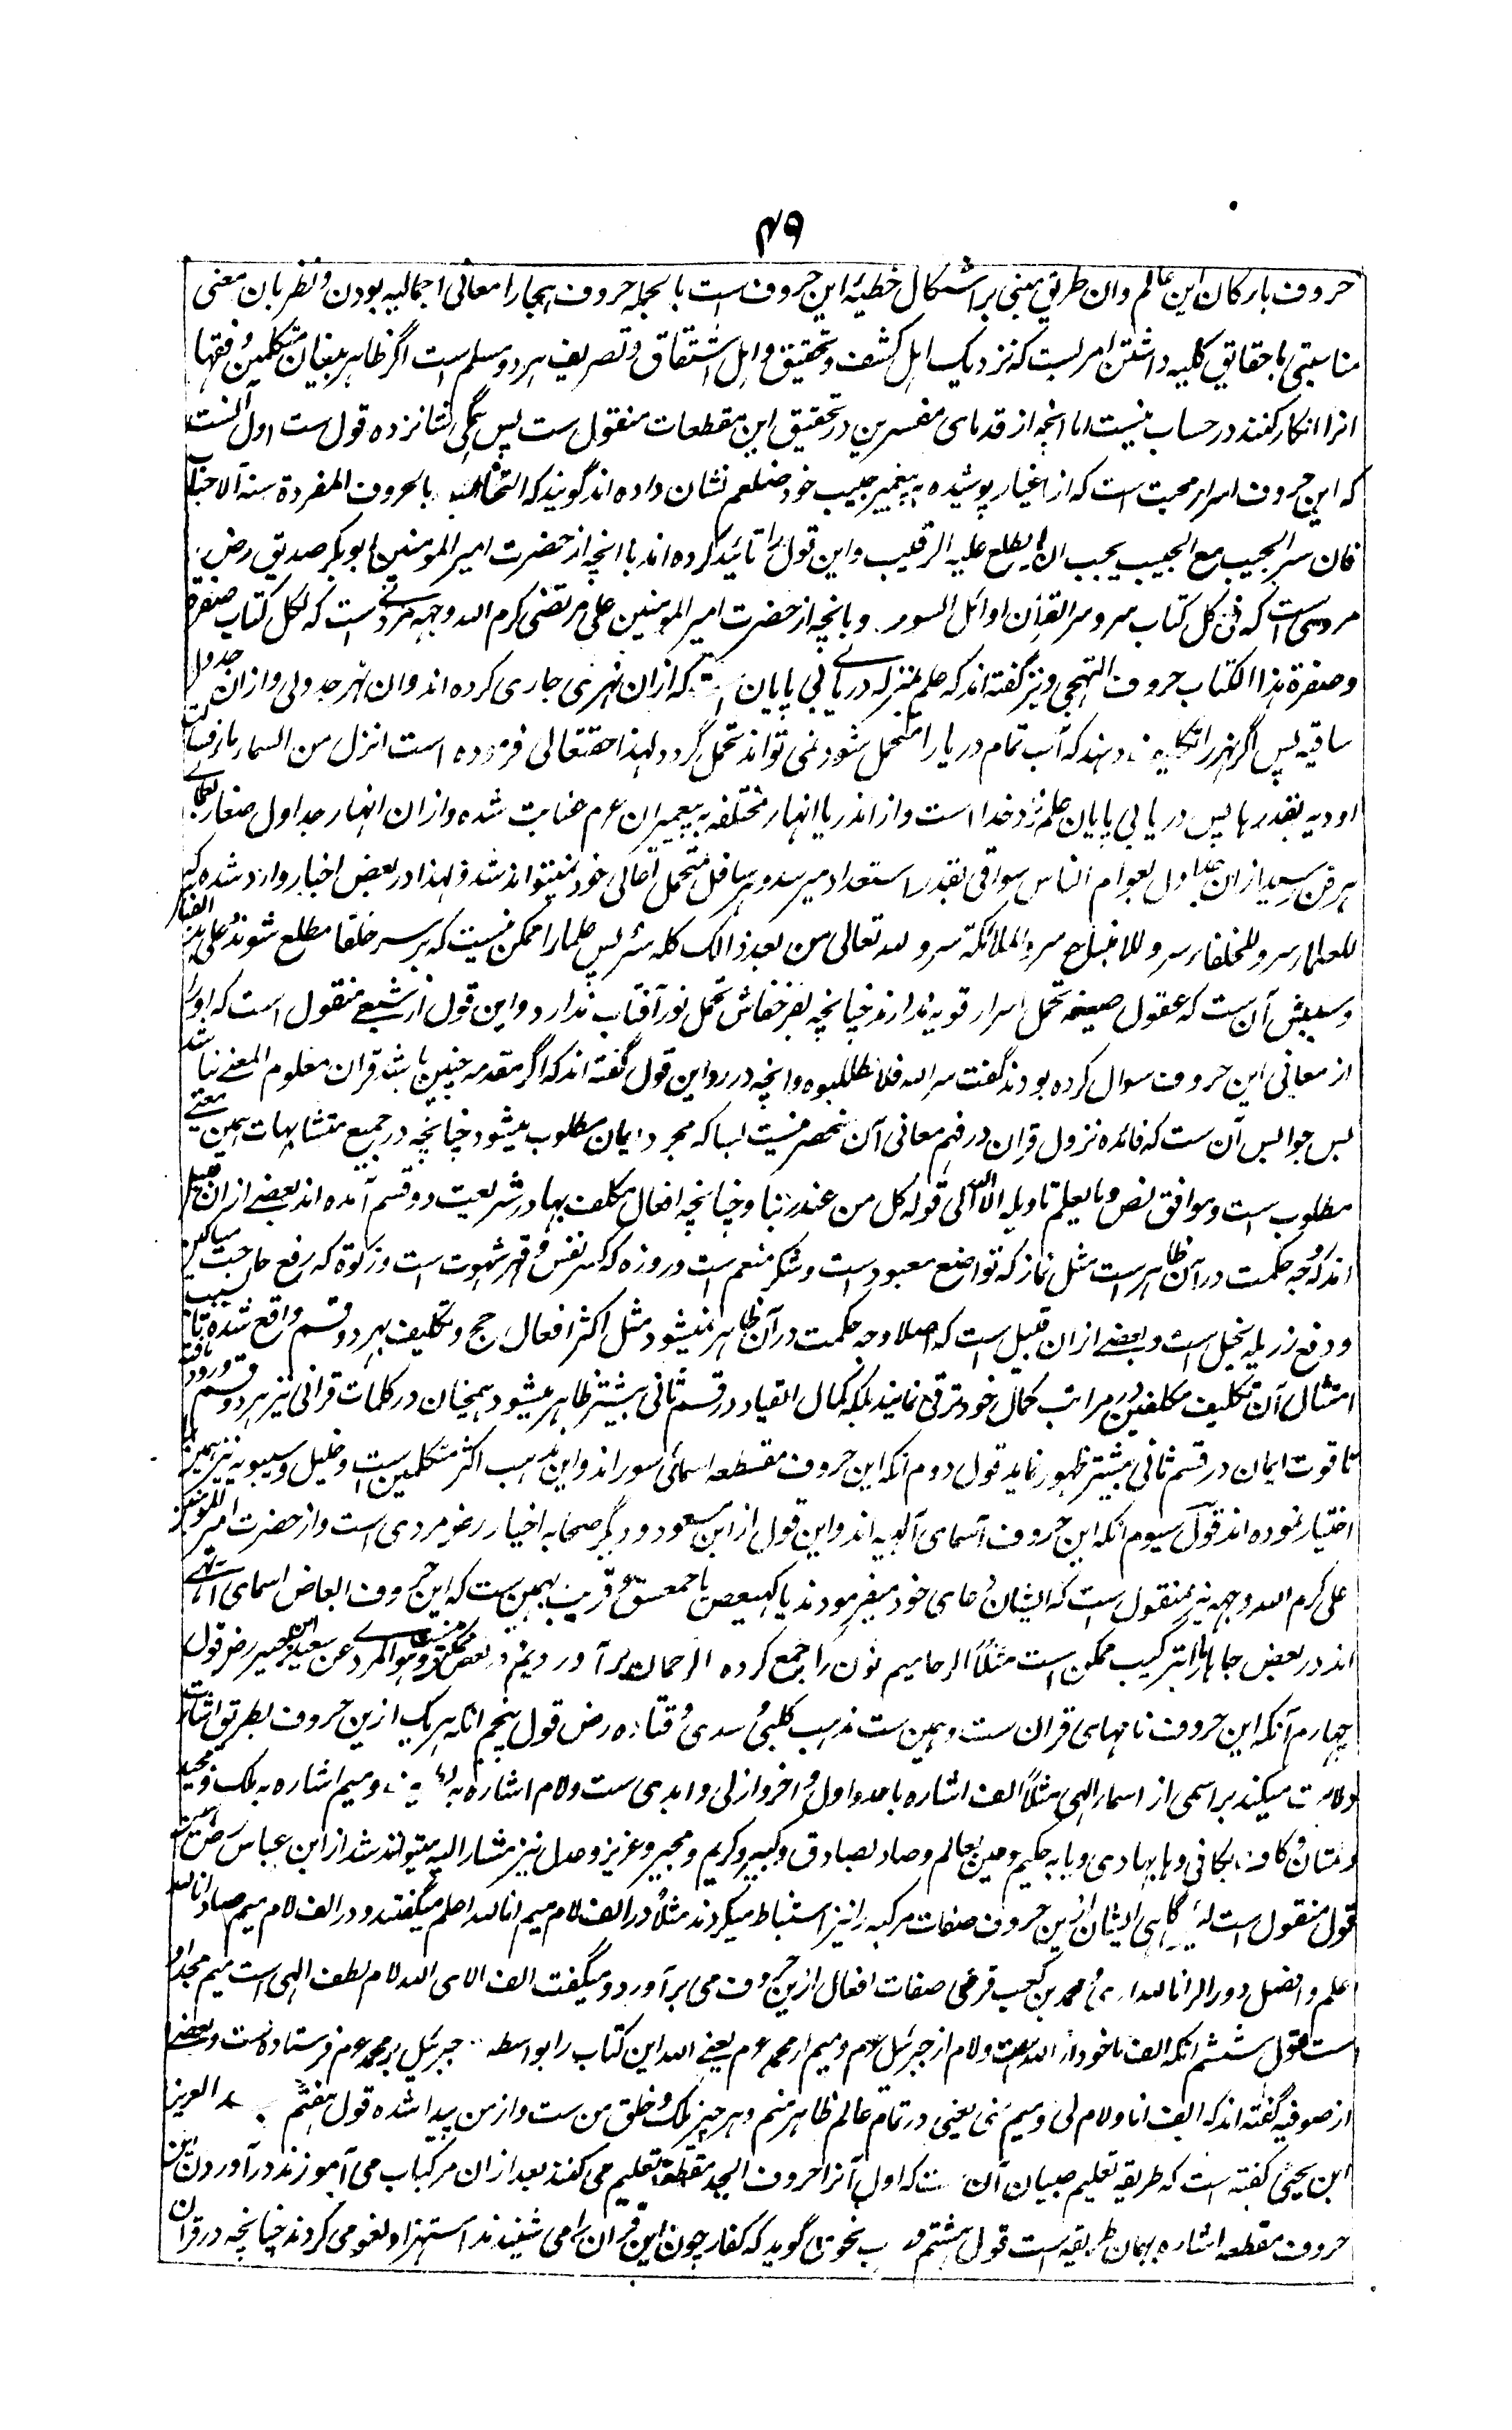 ۴۹
حروف بارکان این عالم وان طریق مبنی بر اشکال خطیۀ این حروف است بالجملہ حروف ہجا را معانی اجمالیہ بودن و نظر بان معنی
مناسبتی با حقایق کلیہ داشتن امریست کہ نزدیک اہل کشف و تحقیق و اہل اشتقاق و تصریف ہر دو مسلم است اگر ظاہر بینان متکلمین و فقہا
انرا انکار کنند در حساب نیست اما انچہ از قدمای مفسرین در تحقیق این مقطعات منقول ست پس ہمگی شانزدہ قول ست اول آنست
کہ این حروف اسرار محبت است کہ از اغیار پوشیدہ بہ پیغمبر حبیب خود صلعم نشان دادہ اند گویند کہ التخاطب بالحروف المفردة سنة الاحباب
فان سر الحبیب مع الحبیب یجب ان لا یطلع علیہ الرقیب و این قول را تائید کردہ اند با انچہ از حضرت امیر المومنین ابو بکر صدیق رض
مروی است کہ فی کل کتاب سر و سر القرآن اوائل السور و بانچہ از حضرت امیر المومنین علی مرتضی کرم اللہ وجہہ مروی است کہ لکل کتاب صفوة
و صفوة ہذا الکتاب حروف التہجی و نیز گفتہ اند کہ علم بمنزلہ دریائی بی پایان است کہ ازان نہری جاری کردہ اند و ان نہر جدولی و ازان جدول
ساقیہ پس اگر نہر را تکلیف دہند کہ آب تمام دریا را متحمل شود نمی تواند متحمل گردد لہذا حقتعالی فرمودہ است انزل من السماء ماء فسالت
اودیة بقدرہا پس دریای بی پایان علم نزد خدا است و از اندریا انہار مختلفہ بہ پیغمبران عم عنایت شدہ و ازان انہار جداول صغار بعلمای
ہر فن رسید ازان جداول بعوام الناس سواقی بقدر استعداد میرسد و ہر سافل متحمل اعالی خود نمیتواند شد و لہذا در بعض اخبار وارد شدہ کہ
للعلماء سر و للخلفاء سر و للانبیاء سر و للملائکة سر و للہ تعالی من بعد ذالک کلہ سر پس علما را ممکن نیست کہ بر سر خلفا مطلع شوند و علی ہذا القیاس
و سببش آن ست کہ عقول ضعیفہ تحمل اسرار قویہ ندارند چنانچہ بصر خفاش تحمل نور آفتاب ندارد و این قول از شعبی منقول است کہ او را
از معانی این حروف سوال کردہ بودند گفت سر اللہ فلا تطلبوہ و انچہ در رد این قول گفتہ اند کہ اگر مقدمہ چنین باشد قران معلوم المعنی نباشد
پس جوابش آن ست کہ فائدہ نزول قران در فہم معانی آن منحصر نیست بسا کہ مجرد ایمان مطلوب میشود چنانچہ در جمیع متشابہات ہمین معنی
مطلوب ست و موافق نص و ما یعلم تاویلہ الا اللہ الی قولہ کل من عند ربنا و چنانچہ افعال مکلف بہا در شریعت دو قسم آمدہ اند بعضی ازان قبیل
اند کہ وجہ حکمت در آن ظاہر است مثل نماز کہ تواضع معبود است و شکر منعم است و روزہ کہ کسر نفس و قہر شہوت است و زکوة کہ رفع حاجت مساکین
و دفع رزیلہ بخل است و بعضی ازان قبیل است کہ اصلا وجہ حکمت در آن ظاہر نمیشود مثل اکثر افعال حج و تکلیف بہر دو قسم واقع شدہ تا بسبب
امتثال آن تکلیف مکلفین در مراتب کمال خود ترقی نمایند بلکہ کمال انقیاد در قسم ثانی بیشتر ظاہر میشود ہمچنان در کلمات قرانی نیز ہر دو قسم ورود یافتہ
تا قوت ایمان در قسم ثانی بیشتر ظہور نماید قول دوم انکہ این حروف مقطعہ اسمائی سور اند و این مذہب اکثر متکلمین ست و خلیل و سیبویہ نیز ہمین را
اختیار نمودہ اند قول سیوم انکہ این حروف اسمای الہیہ اند و این قول از ابن مسعود و دیگر صحابہ اخیار رض مروی است و از حضرت امیر المومنین
علی کرم اللہ وجہہ نیز منقول است کہ ایشان دعای خود میفرمودند یا کہیعص یا حمعسق و قریب بہمین ست کہ این حروف ابعاض اسمای الہی
اند در بعض جاہا ترکیب ممکن است مثلاً الر حامیم نون را جمع کردہ الرحمان بر آوردیم و در بعض ممکن نیست و ہو المروی عن سعید ابن جبیر رض قول
چہارم آنکہ این حروف نامہای قران ست و ہمین ست مذہب کلبی و سدی و قتادہ رض قول پنجم انکہ ہر یک ازین حروف بطریق اشارت
دلالت میکند بر اسمی از اسماء الہی مثلاً الف اشارہ باحد و اول و اخر و ازلی و ابدی ست و لام اشارہ بہ لطیف و میم اشارہ بہ ملک و مجید
و منان و کاف بکافی و ہا بہادی و یا بہ حکیم و عین بعالم و صاد بصادق و کبیر و کریم و مجیر و عزیز و عدل نیز مشار الیہ میتوانند شد از ابن عباس رض ہمین
قول منقول است لیکن گاہی ایشان ازین حروف صفات مرکبہ را نیز استنباط میکردند مثلاً در الف لام میم انا اللہ اعلم میگفتند و در الف لام میم صاد انا اللہ
اعلم و افصل و در الر انا اللہ اری و محمد بن کعب قرظی صفات افعال ازین حروف می برآورد و میگفت الف الای اللہ لام لطف الہی است میم مجد او
ست قول ششم انکہ الف ماخوذ از اللہ ست و لام از جبرئیل عم و میم از محمد عم یعنی اللہ این کتاب را بواسطہ جبرئیل بر محمد عم فرستادہ است و بعضی
از صوفیہ گفتہ اند کہ الف انا و لام لی و میم منی یعنی در تمام عالم ظاہر منم و ہر چیز ملک و خلق من ست و از من پیدا شدہ قول ہفتم العزیز
ابن یحیی گفتہ است کہ طریقہ تعلیم صبیان آن ست کہ اول آنرا حروف ابجد مقطعہ تعلیم می کنند بعد ازان مرکبات می آموزند در آوردن این
حروف مقطعہ اشارہ بہمان طریقہ است قول ہشتم نحوی گوید کہ کفار چون این قران را می شنیدند استہزا و لغو می کردند چنانچہ در قران